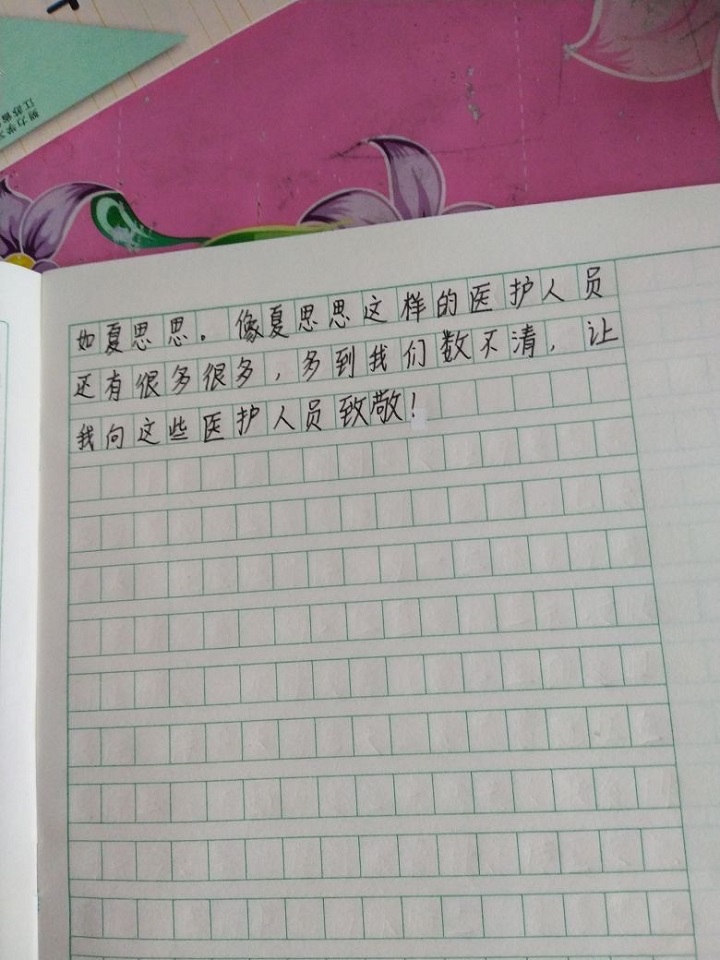 努力学习
江苏省
如夏思思。像夏思思这样的医护人员
还有很多很多，多到我们数不清，让
我向这些医护人员致敬！